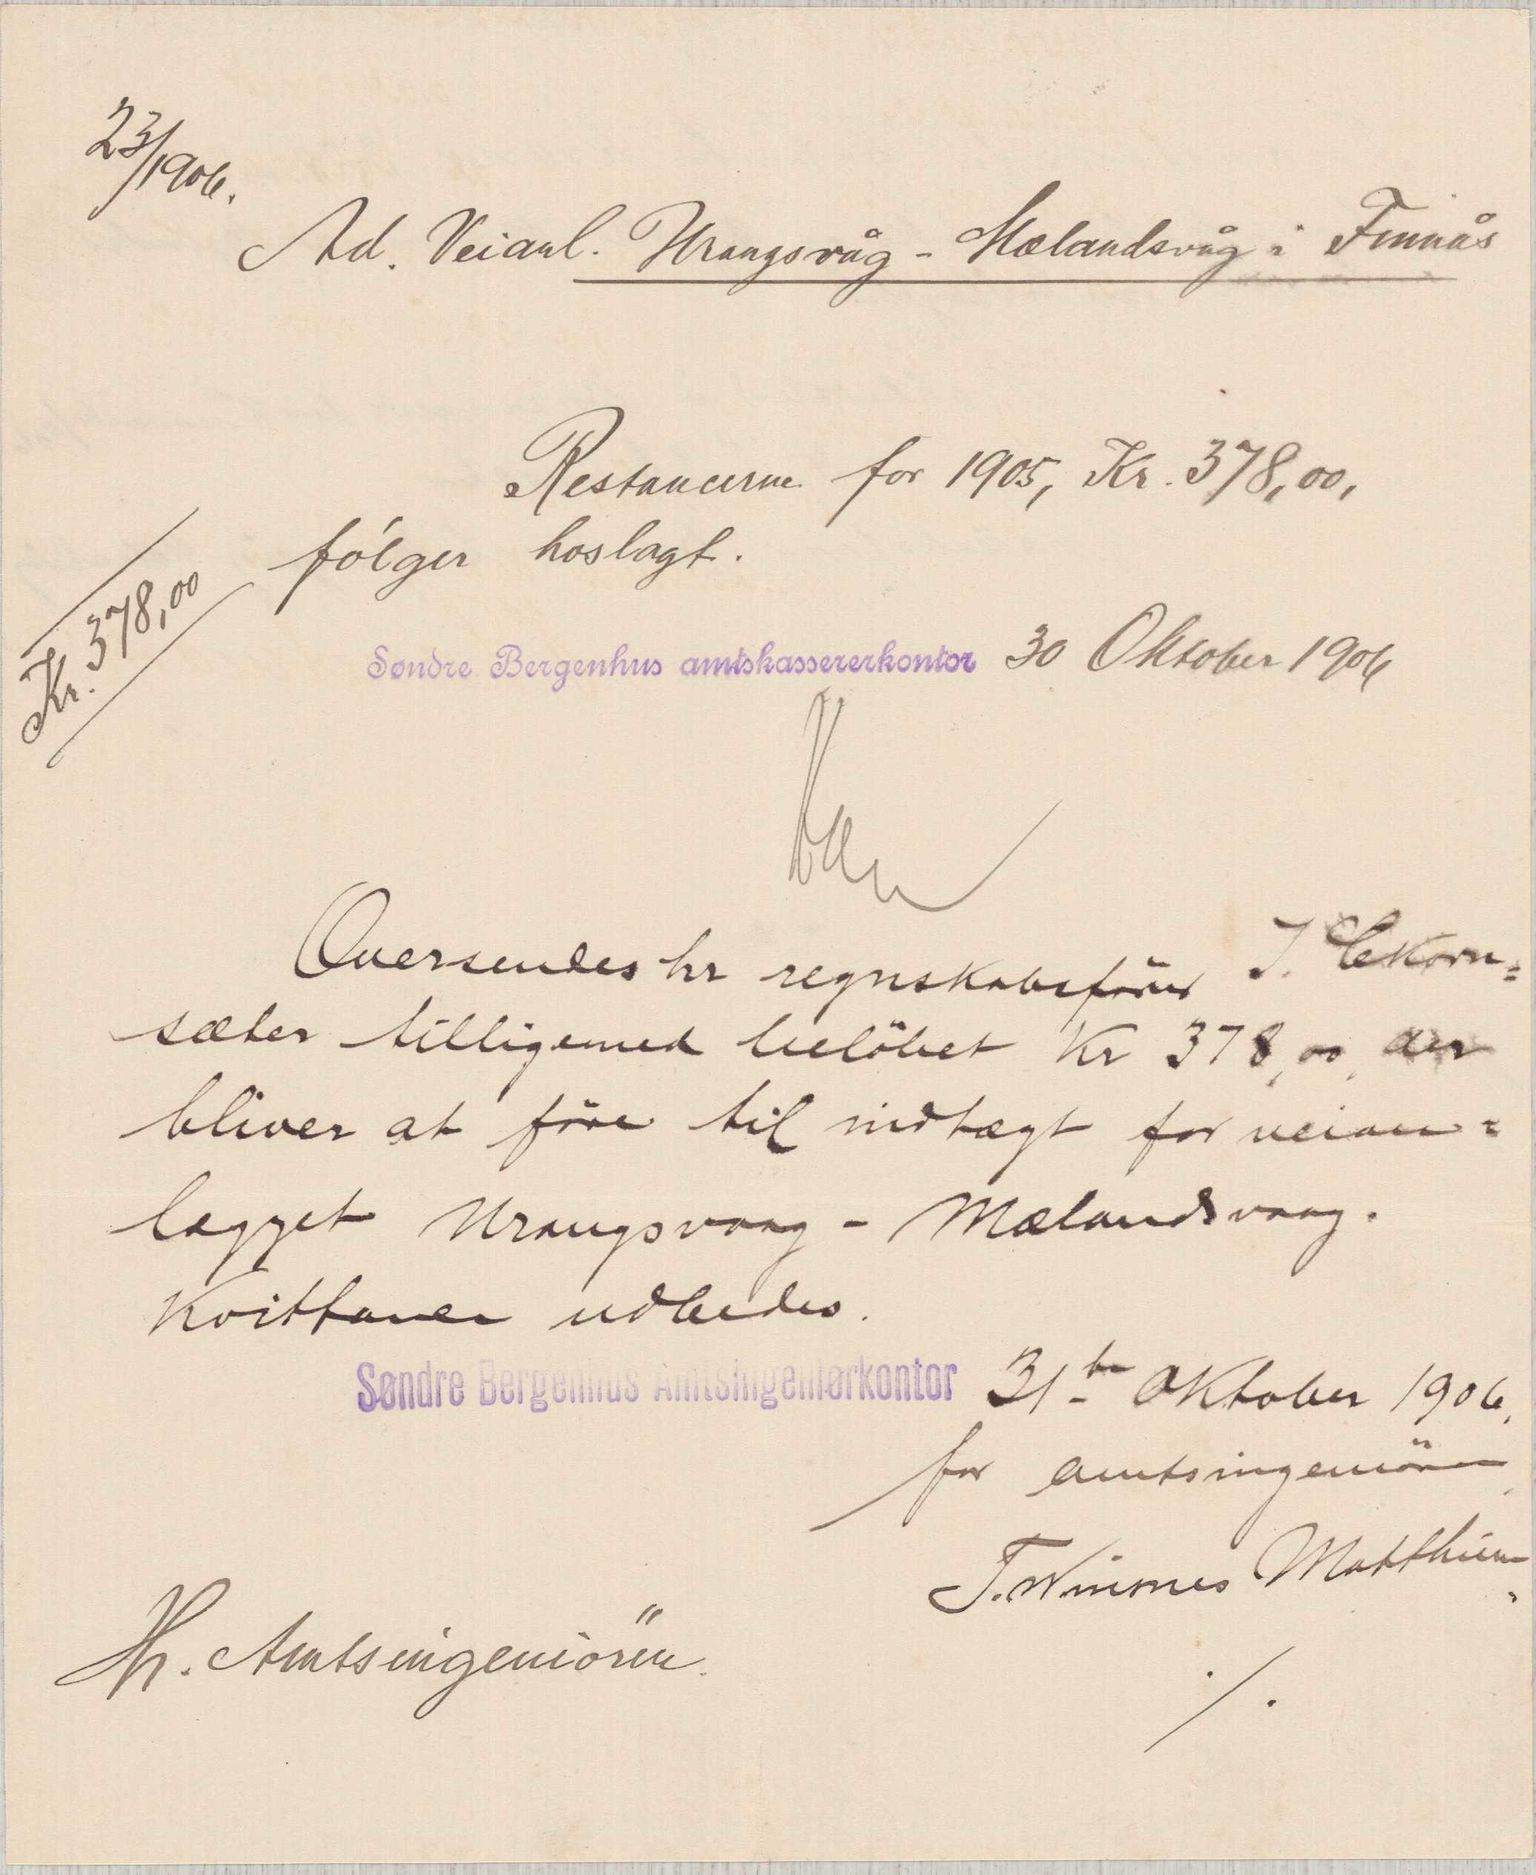 23/1906.
Ad. Veianl. Urangsvåg - Mælandsvåg i Finnås
Restancerne for 1905, Kr. 378,00,
følger hoslagt.
Kr. 378,00
Søndre Bergenhus amtskassererkontor 30 Oktober 1906
Oversendes hr regnskabsfører J. Ekorn=
sæter tilligemed beløbet Kr 378,00, der
bliver at føre til indtægt for veian=
lægget Urangsvaag - Mælandsvaag.
Kvittance udbedes.
Søndre Bergenhus Amtsingeniørkontor 31te Oktober 1906.
for amtsingeniøren
T. Matthiesen
./.
Hr. Amtsingeniören.